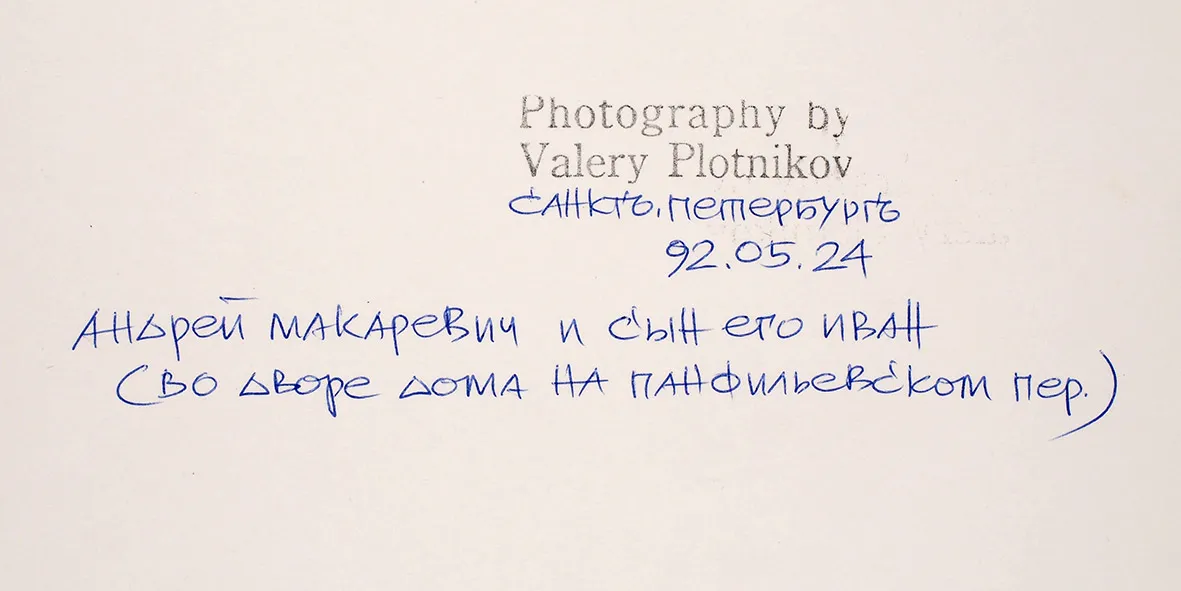 Photography by
Valery Plotnikov
Санктъ.Петербургъ
92.05.24
Андрей Макаревич и сын его Иван
(во дворе дома на Панфильевском пер.)